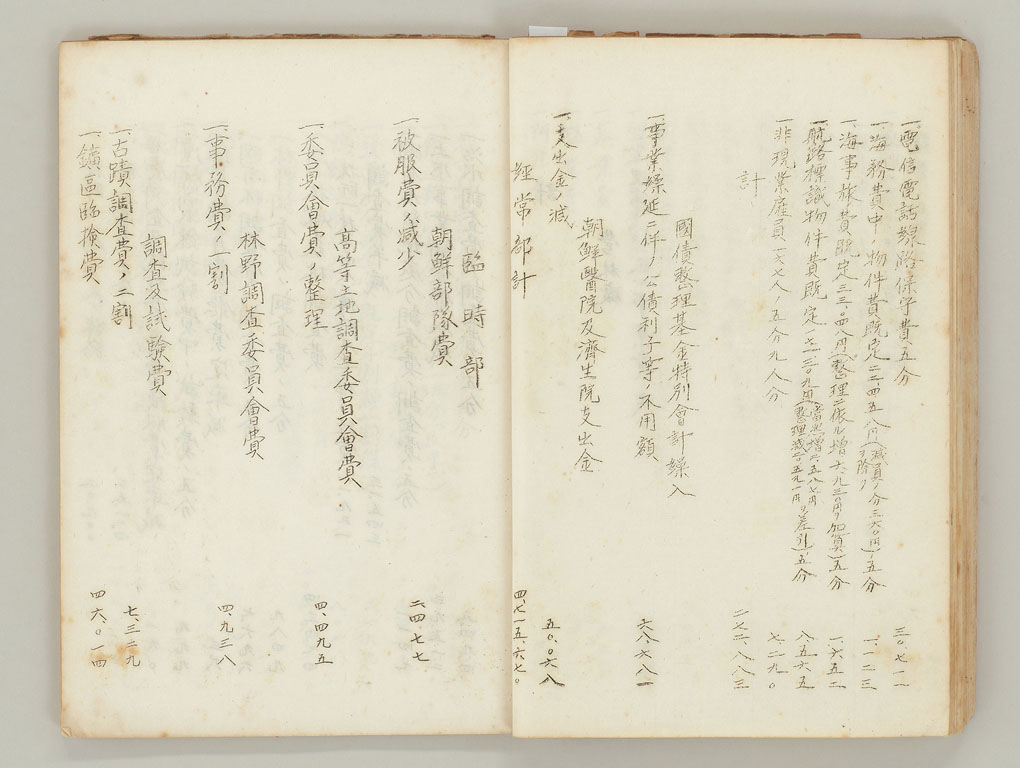 一、電信電話線路保守費五分 三〇、七一一
一、海務費中ノ物件費既定二二、四五八円(減員ノ分三六〇円ヲ除ク)ノ五分 一、一二三
一、海事旅費既定三三、〇四円(整理ニ依ル増 円ヲ加算)五分 一、六五二
一、航路標識物件費既定 円 整理減 ヲ差引)五分 八、五六五
一、非現業雇員一七七人ノ五分九人分 七、二九〇
計 二七二、八八三
國債整理基金特別會計繰入
一、事業繰延ニ伴フ公債利子等ノ不用額 六八六八一
朝鮮醫院及濟生院支出金
一、支出金ノ減 五〇、〇六八
經常部計 四、七一五、六七〇
臨時部
朝鮮部隊費
一、被服費ノ減少 二四七七
高等土地調査委員會費
一、委員會費ノ整理 四、四九五
林野調査委員會費
一、事務費ノ一割 四、九三八
調査及試験費
一、古蹟調査費ノ二割 七、三二九
一、鑛區臨検費 四六、〇一四